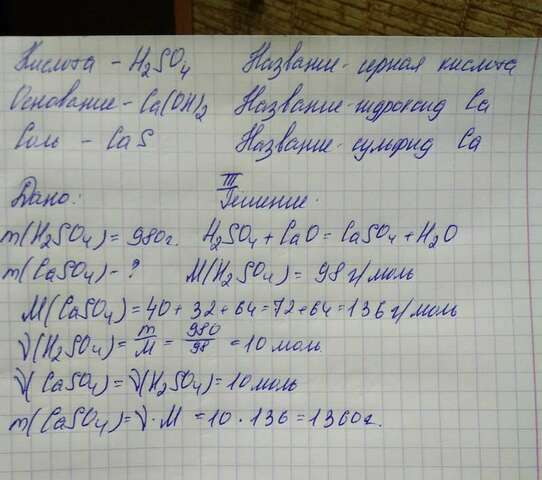 Кислота - H₂SO₄ Название - серная кислота
Основание - Ca(OH)₂ Название - гидроксид Ca
Соль - CaS Название - сульфид Ca
III
Дано: Решение.
m(H₂SO₄) = 980г. H₂SO₄ + CaO = CaSO₄ + H₂O
m(CaSO₄) - ? M(H₂SO₄) = 98 г/моль
M(CaSO₄) = 40 + 32 + 64 = 72 + 64 = 136 г/моль
ν(H₂SO₄) = m/M = 980/98 = 10 моль
ν(CaSO₄) = ν(H₂SO₄) = 10 моль
m(CaSO₄) = ν · M = 10 · 136 = 1360г.